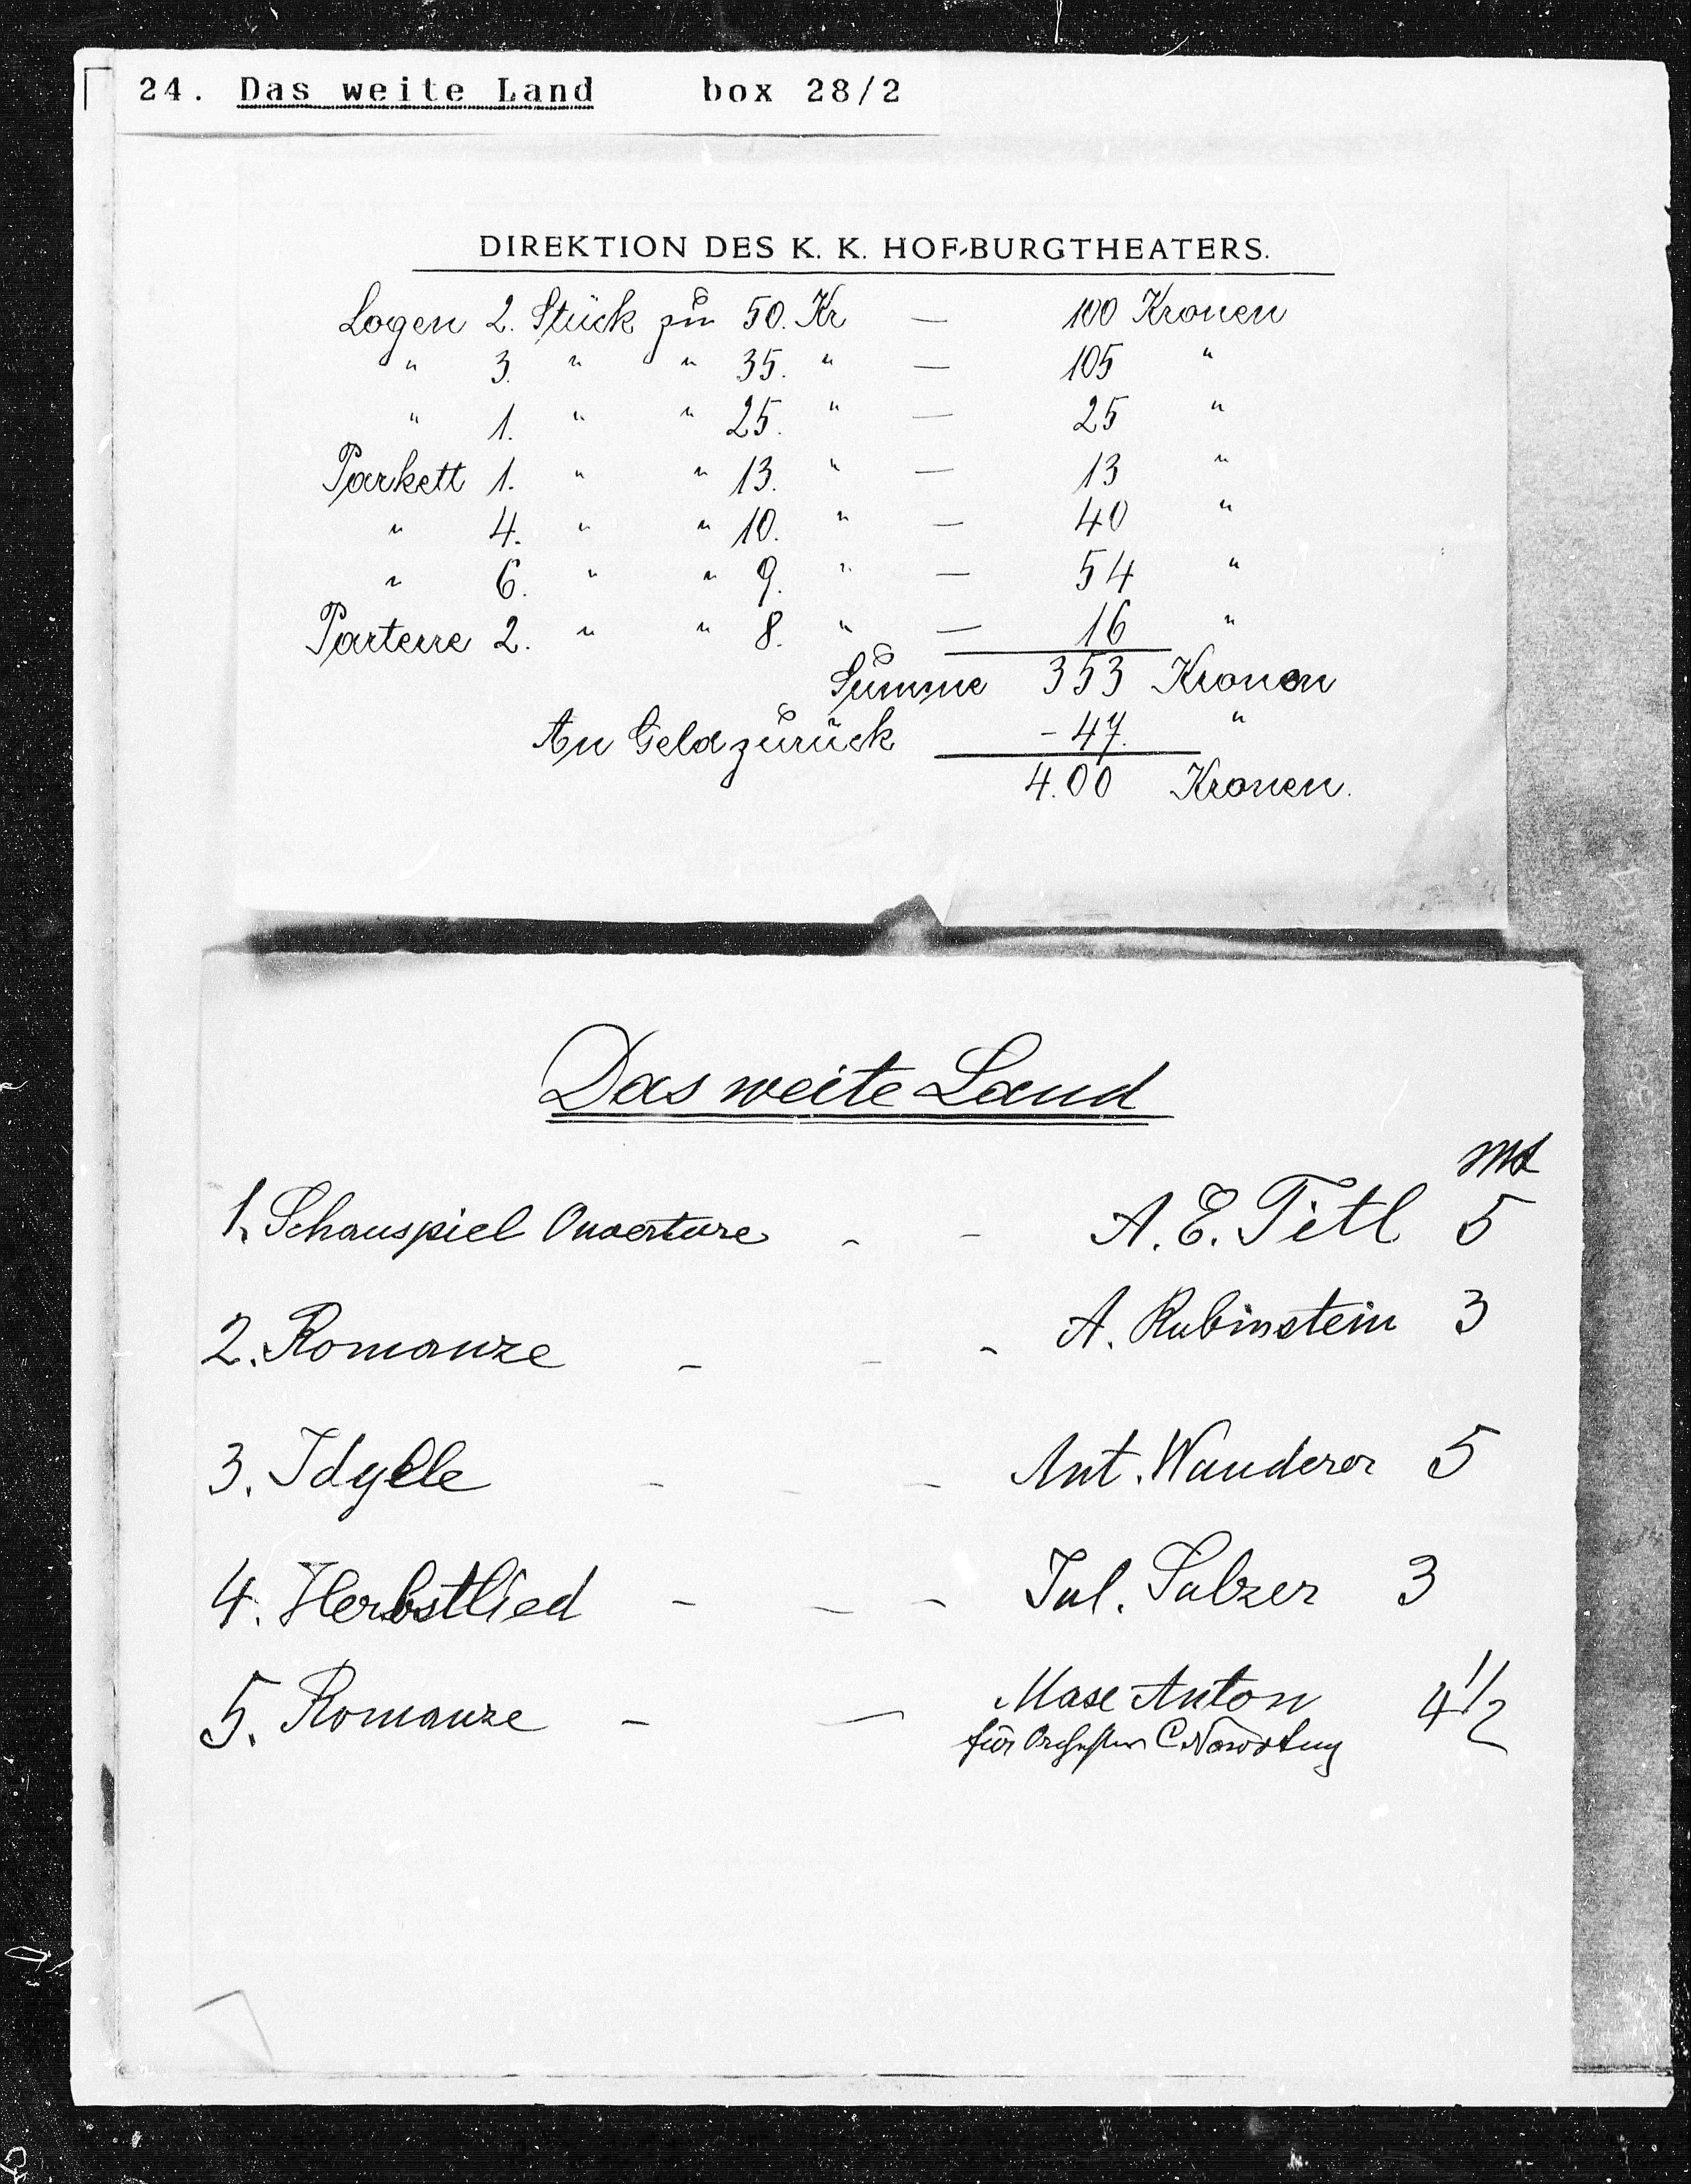 24. Das weite Land box 28/2
DIREKTION DES K. K. HOF-BURGTHEATERS.
Logen 2. Stück zu 50. Kr — 100 Kronen
" 3. " " 35. " — 105 "
" 1. " " 25. " — 25 "
Parkett 1. " " 13. " — 13 "
" 4. " " 10. " — 40 "
" 6. " " 9. " — 54 "
Parterre 2. " " 8. " — 16 "
Summe 353 Kronen
An Geld zurück - 47. "
4.00 Kronen.
Das weite Land
1. Schauspiel Ouverture - - A. E. Titl 5
2. Romanze - - - A. Rubinstein 3
3. Idylle - - - Ant. Wanderer 5
4. Herbstlied - - - Jul. Sulzer 3
5. Romanze - — Mase Anton 4 1/2
für Orchester C Nowotny